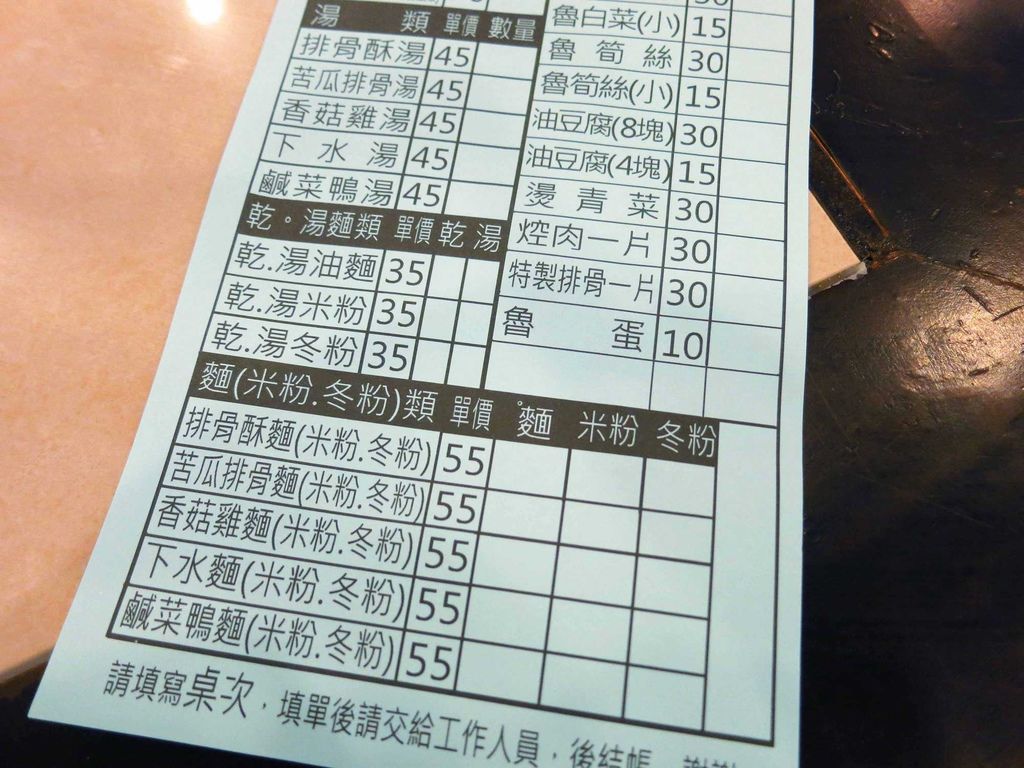 湯 類 單價 數量
排骨酥湯 45
苦瓜排骨湯 45
香菇雞湯 45
下水湯 45
鹹菜鴨湯 45
乾。湯麵類 單價 乾 湯
乾.湯油麵 35
乾.湯米粉 35
乾.湯冬粉 35
魯白菜(小) 15
魯筍絲 30
魯筍絲(小) 15
油豆腐(8塊) 30
油豆腐(4塊) 15
燙青菜 30
焢肉一片 30
特製排骨一片 30
魯蛋 10
麵(米粉.冬粉)類 單價 麵 米粉 冬粉
排骨酥麵(米粉.冬粉) 55
苦瓜排骨麵(米粉.冬粉) 55
香菇雞麵(米粉.冬粉) 55
下水麵(米粉.冬粉) 55
鹹菜鴨麵(米粉.冬粉) 55
請填寫桌次，填單後請交給工作人員，後結帳，謝謝